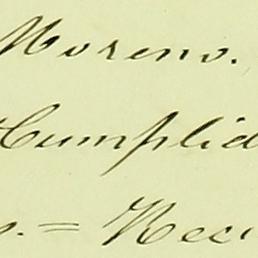 Moreno.
Cumplid
o. = Reci